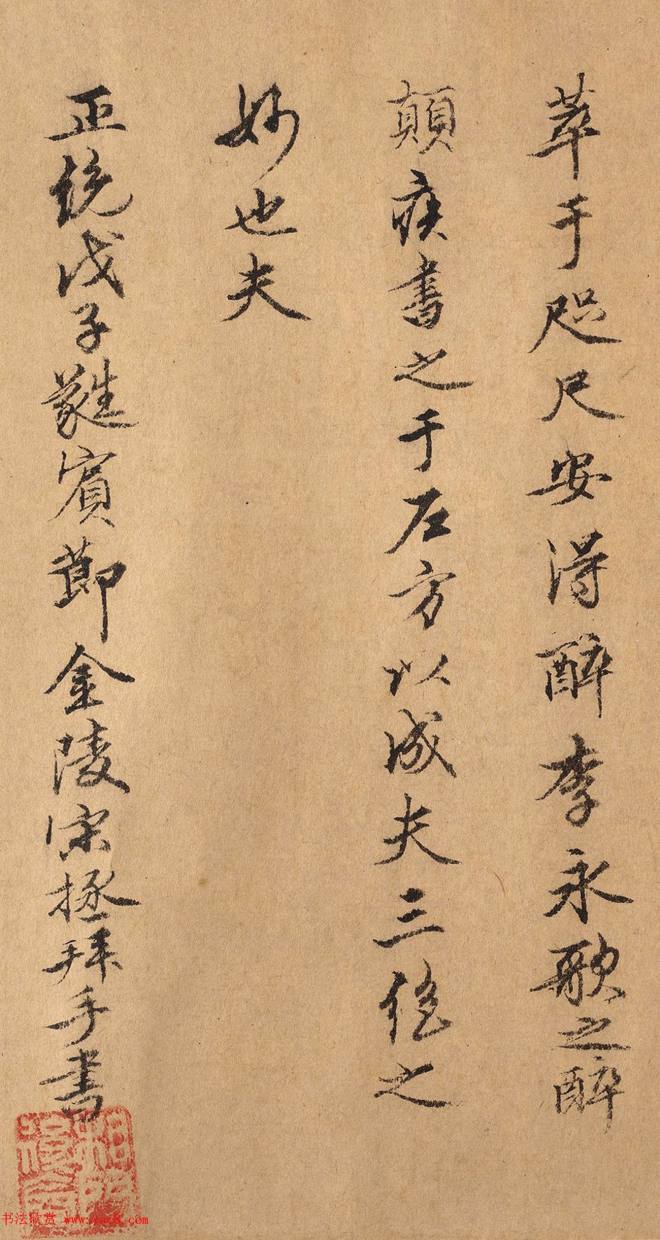 萃于咫尺安得醉李永歌之醉
顛疾書之于左方以成夫三絕之
妙也夫
正統戊子蕤賓節金陵宋拯拜手書
书法欣赏